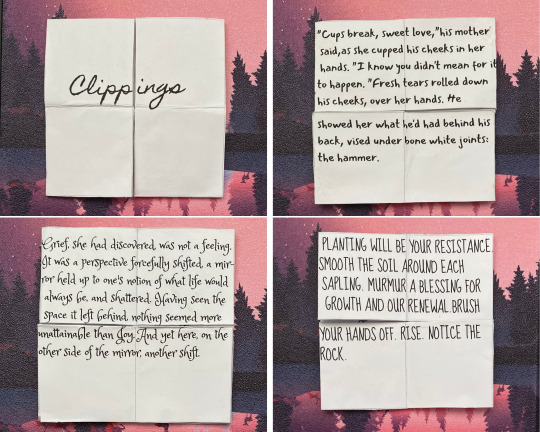 Clippings
"Cups break, sweet love,"his mother
said,as she cupped his cheeks in her
hands. "I know you didn't mean for it
to happen. "Fresh tears rolled down
his cheeks, over her hands. He
showed her what he'd had behind his
back, vised under bone white joints:
the hammer.
Grief, she had discovered, was not a feeling.
It was a perspective forcefully shifted, a mir-
ror held up to one's notion of what life would
always be, and shattered. Having seen the
space it left behind, nothing seemed more
unattainable than Joy. And yet here, on the
other side of the mirror, another shift.
PLANTING WILL BE YOUR RESISTANCE.
SMOOTH THE SOIL AROUND EACH
SAPLING. MURMUR A BLESSING FOR
GROWTH AND OUR RENEWAL.BRUSH
YOUR HANDS OFF. RISE. NOTICE THE
ROCK.